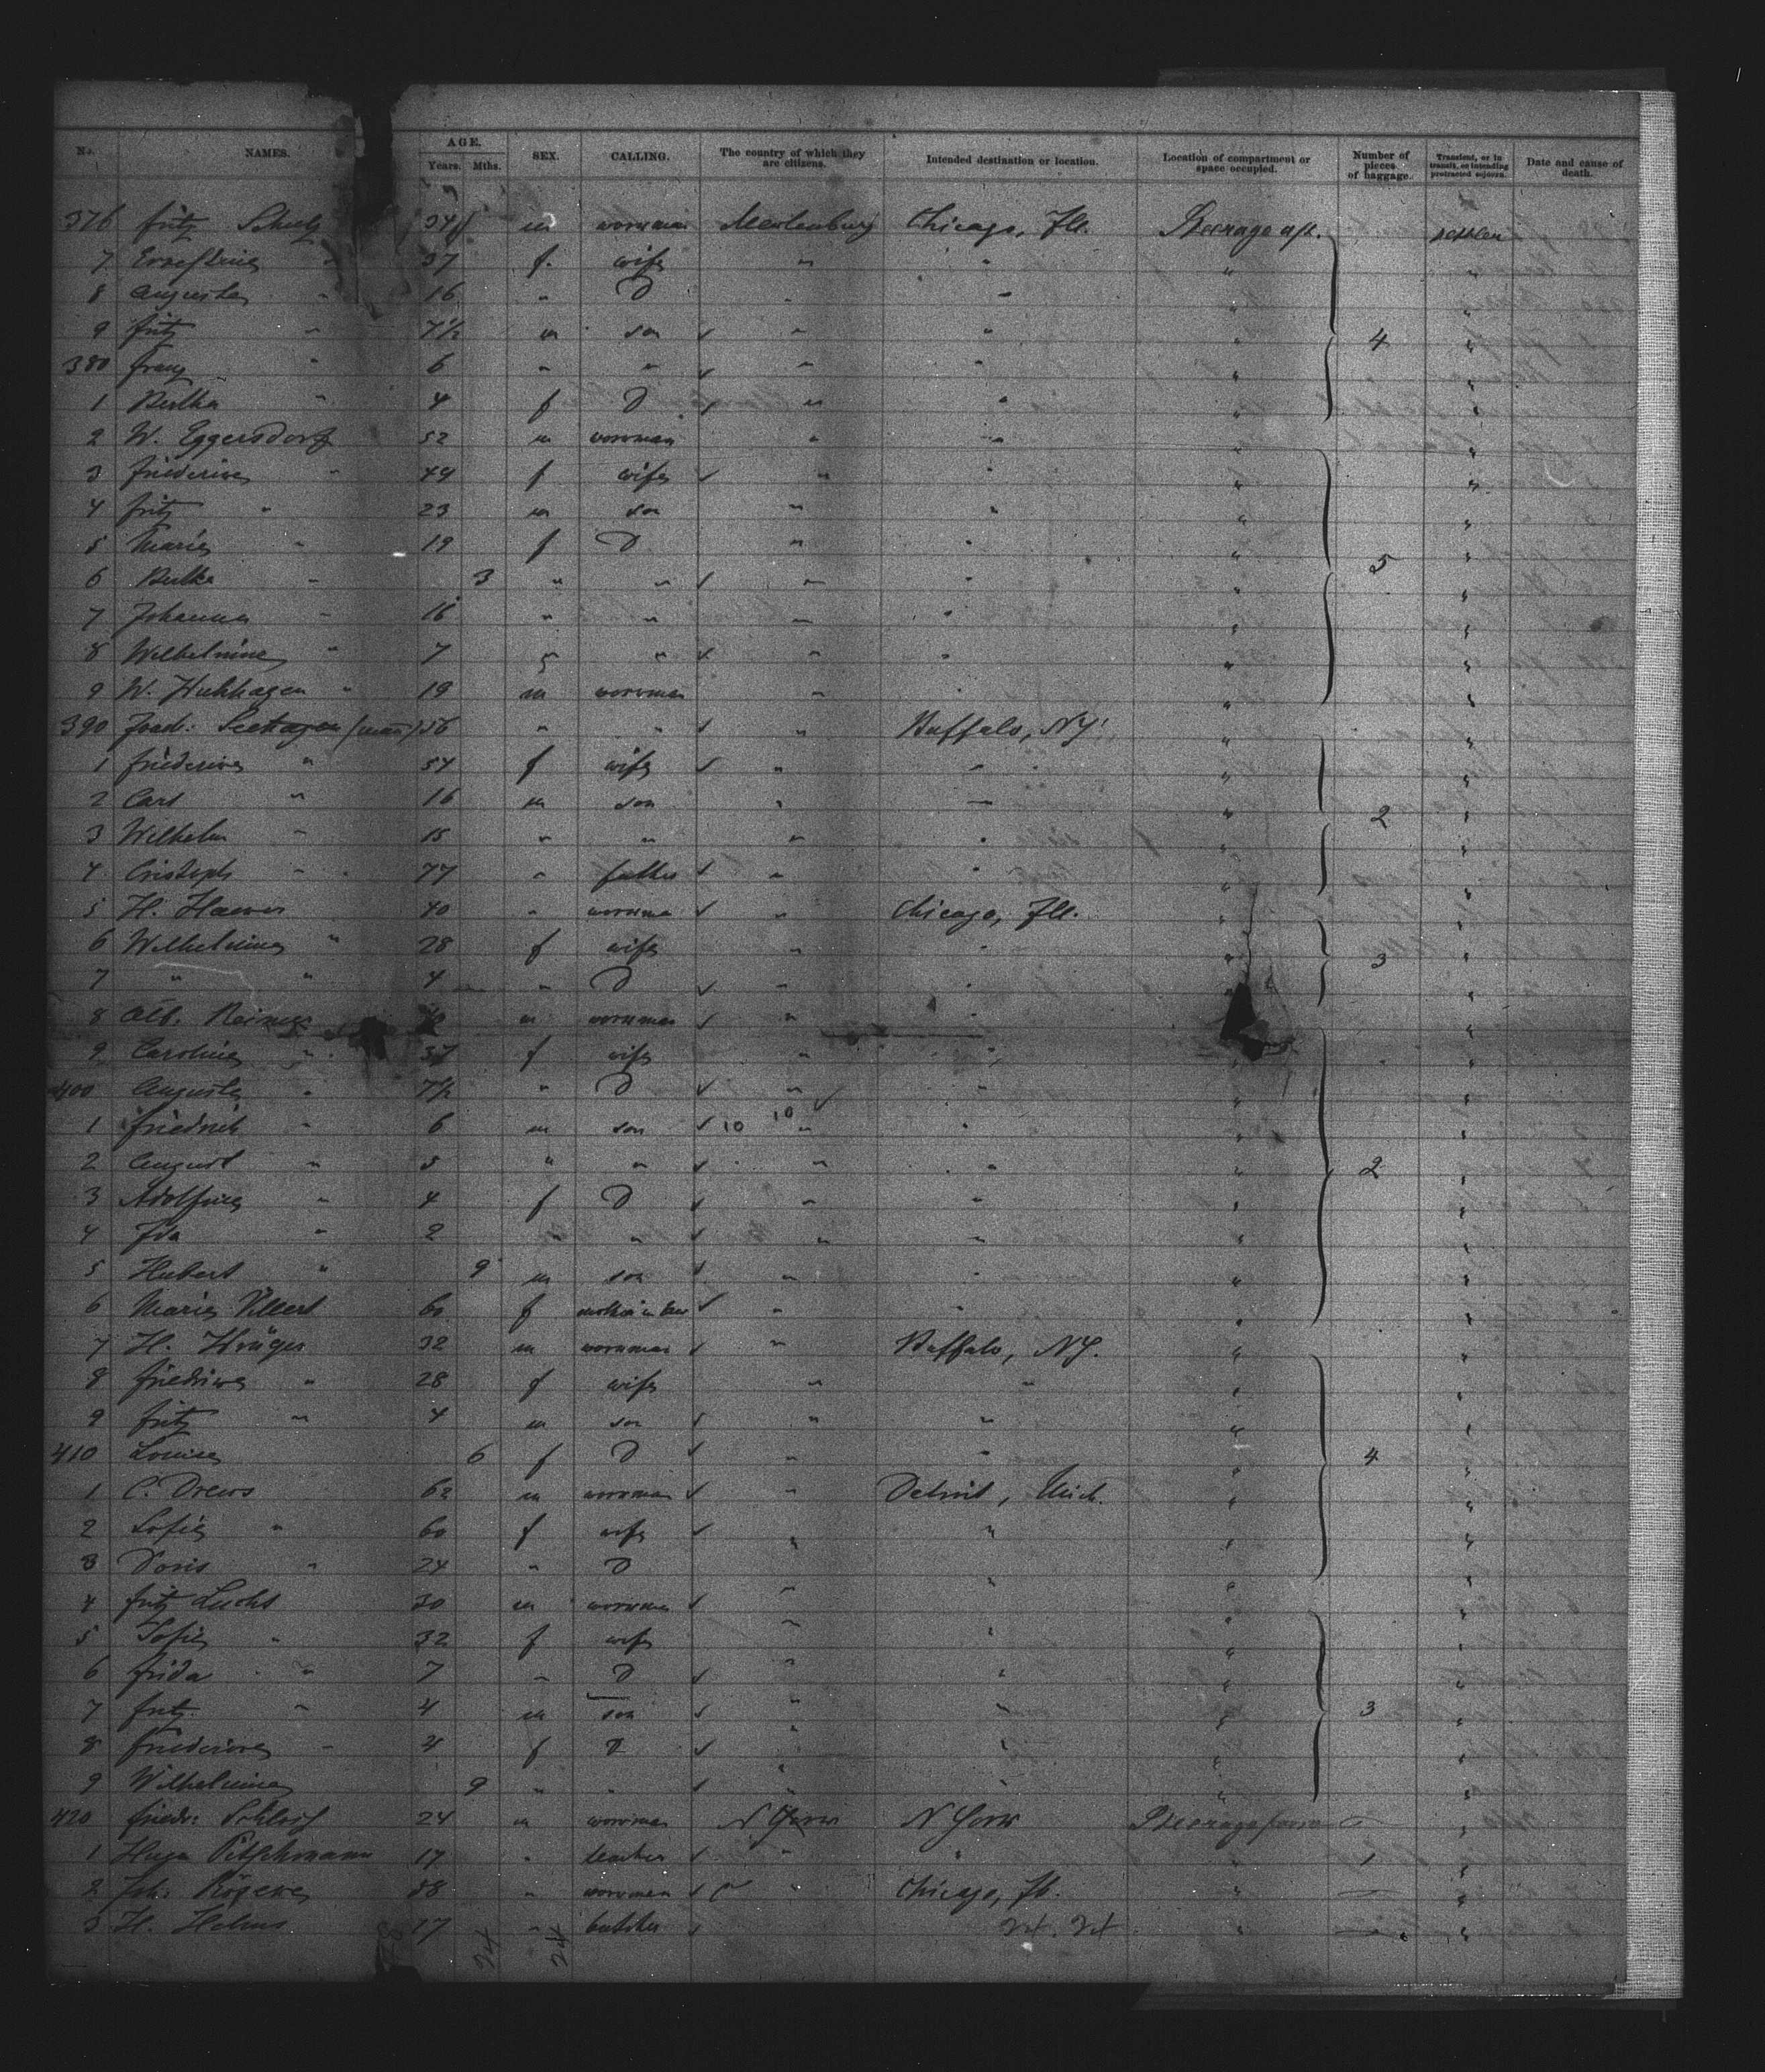 No. NAMES. AGE. Years. Mths. SEX. CALLING. The country of which they are citizens. Intended destination or location. Location of compartment or space occupied. Number of pieces of baggage. Transient, or in transit, or intending protracted sojourn. Date and cause of death.
376 Fritz Schulz 34 m workman Mecklenburg Chicago, Ill. Steerage aft. settler
7 Ernestine " 37 f. wife " " " "
8 Augusta " 16 " D " " " "
9 Fritz " 7½ m son " " " "
4
380 Franz " 6 " " " " " "
1 Bertha " 4 f D " " " "
2 W. Eggersdorf 52 m workman " " " "
3 Friederike " 49 f wife " " " "
4 Fritz " 23 m son " " " "
5 Marie " 19 f D " " " "
5
6 Bertha " 3 " " " " " "
7 Johanna " 16 " " " " " "
8 Wilhelmine " 7 " " " " " "
9 W. " 19 m workman " " " "
390 Joach: Seehagen 56 " " " Buffalo, NY. " "
1 Friederike " 54 f wife " " " "
2 Carl " 16 m son " " " "
2
3 Wilhelm " 15 " " " " " "
4 Cristoph " 77 " father " " " "
5 H. 40 " workman " Chicago, Ill. " "
6 Wilhelmine " 28 f wife " " " "
3
7 " " 4 " D " " " "
8 Alb. Reimer m workman " " " "
9 Caroline " 37 f wife " " " "
400 Augusta " 7½ " D " " " "
1 Friedrich " 6 m son 10 10 " " " "
2 August " 5 " " " " " 2 "
3 Adolfine " 4 f D " " " "
4 Ida " 2 " " " " " "
5 Hubert " 9 m son " " " "
6 Marie 60 f mother in law " " " "
7 H. Krüger 32 m workman " Buffalo, NY. " "
8 Friedrike " 28 f wife " " " "
9 Fritz " 4 m son " " " "
410 Louise 6 f D " " " 4 "
1 C. Drews 62 m workman " Detroit, Mich. " "
2 Sofie " 60 f wife " " " "
3 Doris " 24 " D " " " "
4 Fritz Lucht 30 m workman " " " "
5 Sofie " 32 f wife " " " "
6 Frida " 7 " D " " " "
7 Fritz " 4 m son " " " 3 "
8 Friederike " 2 f D " " " "
9 Wilhelmine 9 " " " " " "
420 Friedr: 24 m workman N York N York Steerage "
1 Hugo Pitschmann 17 " " " " 1 "
2 Joh: 58 " workman " Chicago, Ill. " — "
3 H. Helms 17 " butcher " — "
24 24